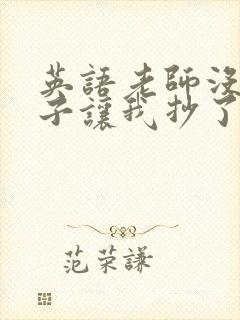 英語老師沒
子讓我抄了
范荣謙